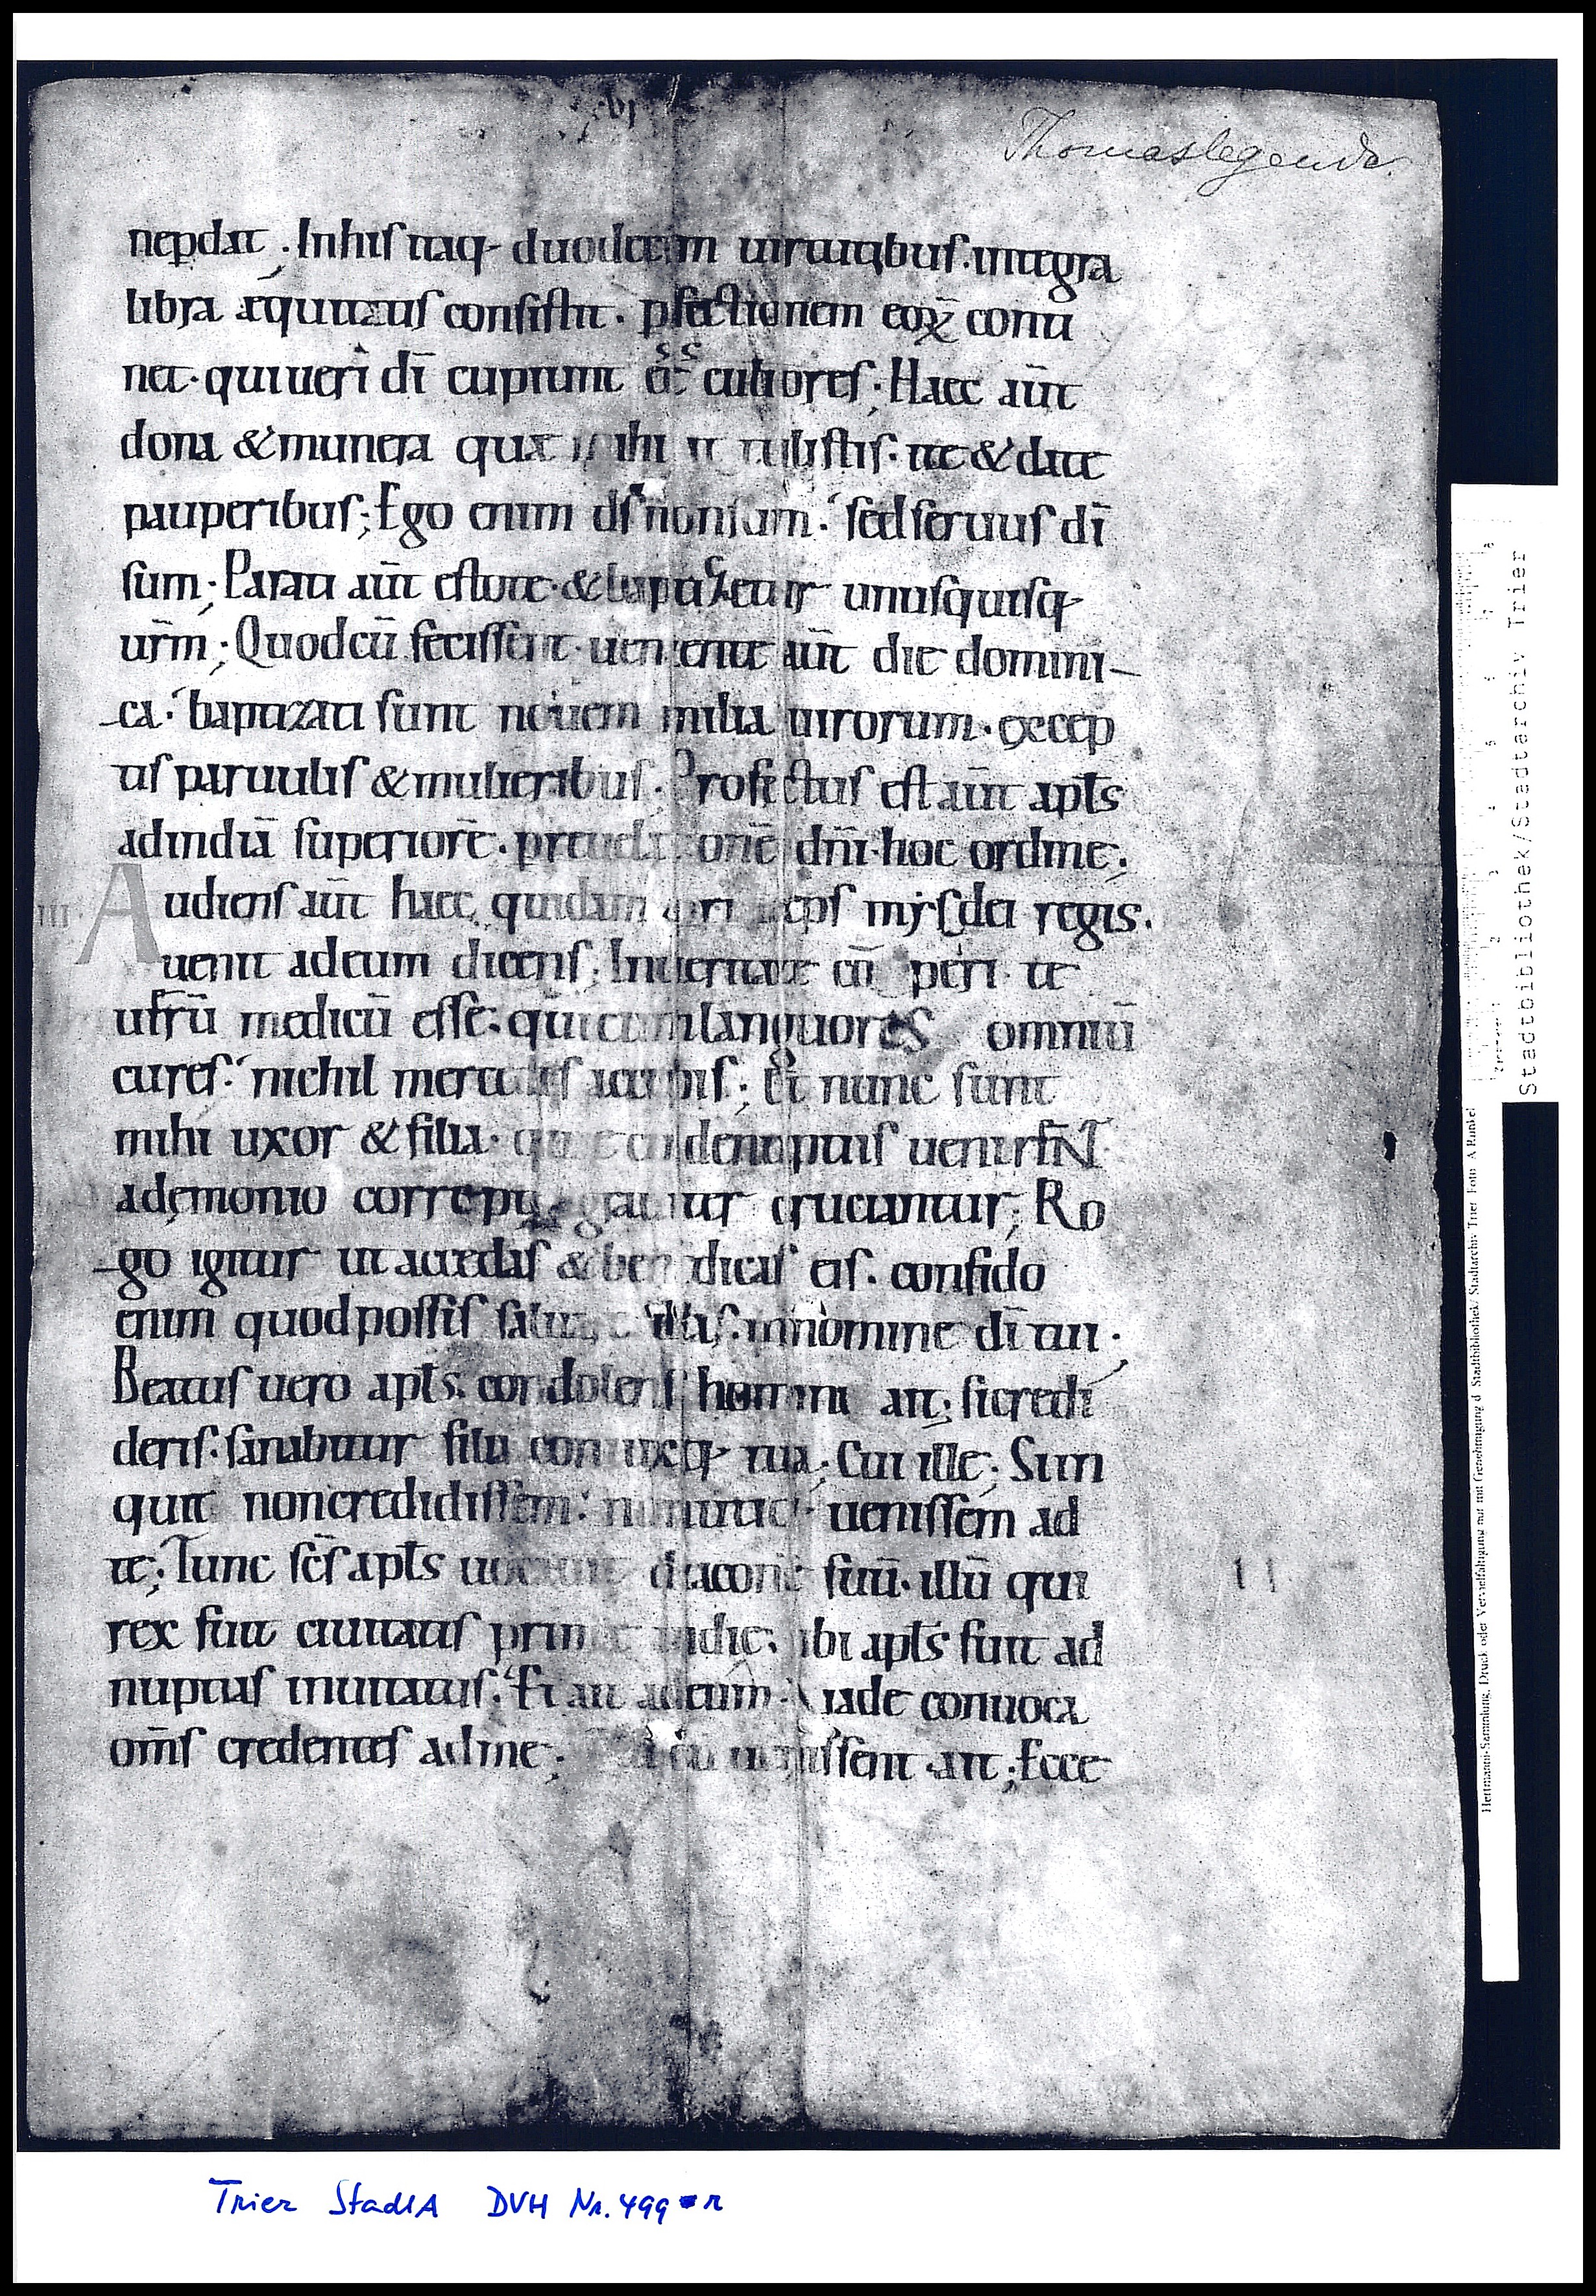 Thomaslegende.
neꝑdat; In his itaq; duodecim uirtutibus. integra
libra ęquitatis consistit. ꝑfectionem eoꝝ conti
net. qui ueri dī cupiunt cultores; Haec aūt
dona & munera quę mihi tulistis. ite & date
pauperibus; Ego enim ds̄ non sum. sed seruus dī
sum; Parati aūt estote. & baptizetur unusquisq;
ur̄m; Quod cū fecissent. ueniente aūt die domini-
-ca. baptizati sunt nouem milia uirorum. excep
tis paruulis & mulieribus. Profectus est aūt apłs
ad indiā superiorē. dn̄i. hoc ordine;
III. Audiens aūt haec, quidam mysdei regis.
uenit ad eum dicens; te
utrū medicū esse. qui cum languores omniū
cures. nichil mercedis accipis; Et nunc sunt
mihi uxor & filia. de nuptiis uenirēNT.
a dęmonio correptę grauiter cruciantur; Ro
-go igitur ut accedas & benedicas eis. confido
enim quod possis illis. in nomine dī tui.
Beatus uero apłs. condolens homini ait; si credi
deris. sanabitur filia coniuxq; tua; Cui ille; Si in
quit non credidissem. uenissem ad
te; Tunc scs̄ apłs diaconē suū. illū qui
rex fuit ciuitatis indię. ibi apłs fuit ad
nuptias inuitatus. Et ait ad eum. Vade conuoca
om̄s credentes ad me; uenissent. ait; Ecce
11
Stadtbibliothek/Stadtarchiv Trier
Hettmann-Sammlung, Druck oder Vervielfältigung nur mit Genehmigung d. Stadtbibliothek/Stadtarchiv Trier Foto: A.Runkel
Trier StadtA DVH Nr. 499 r